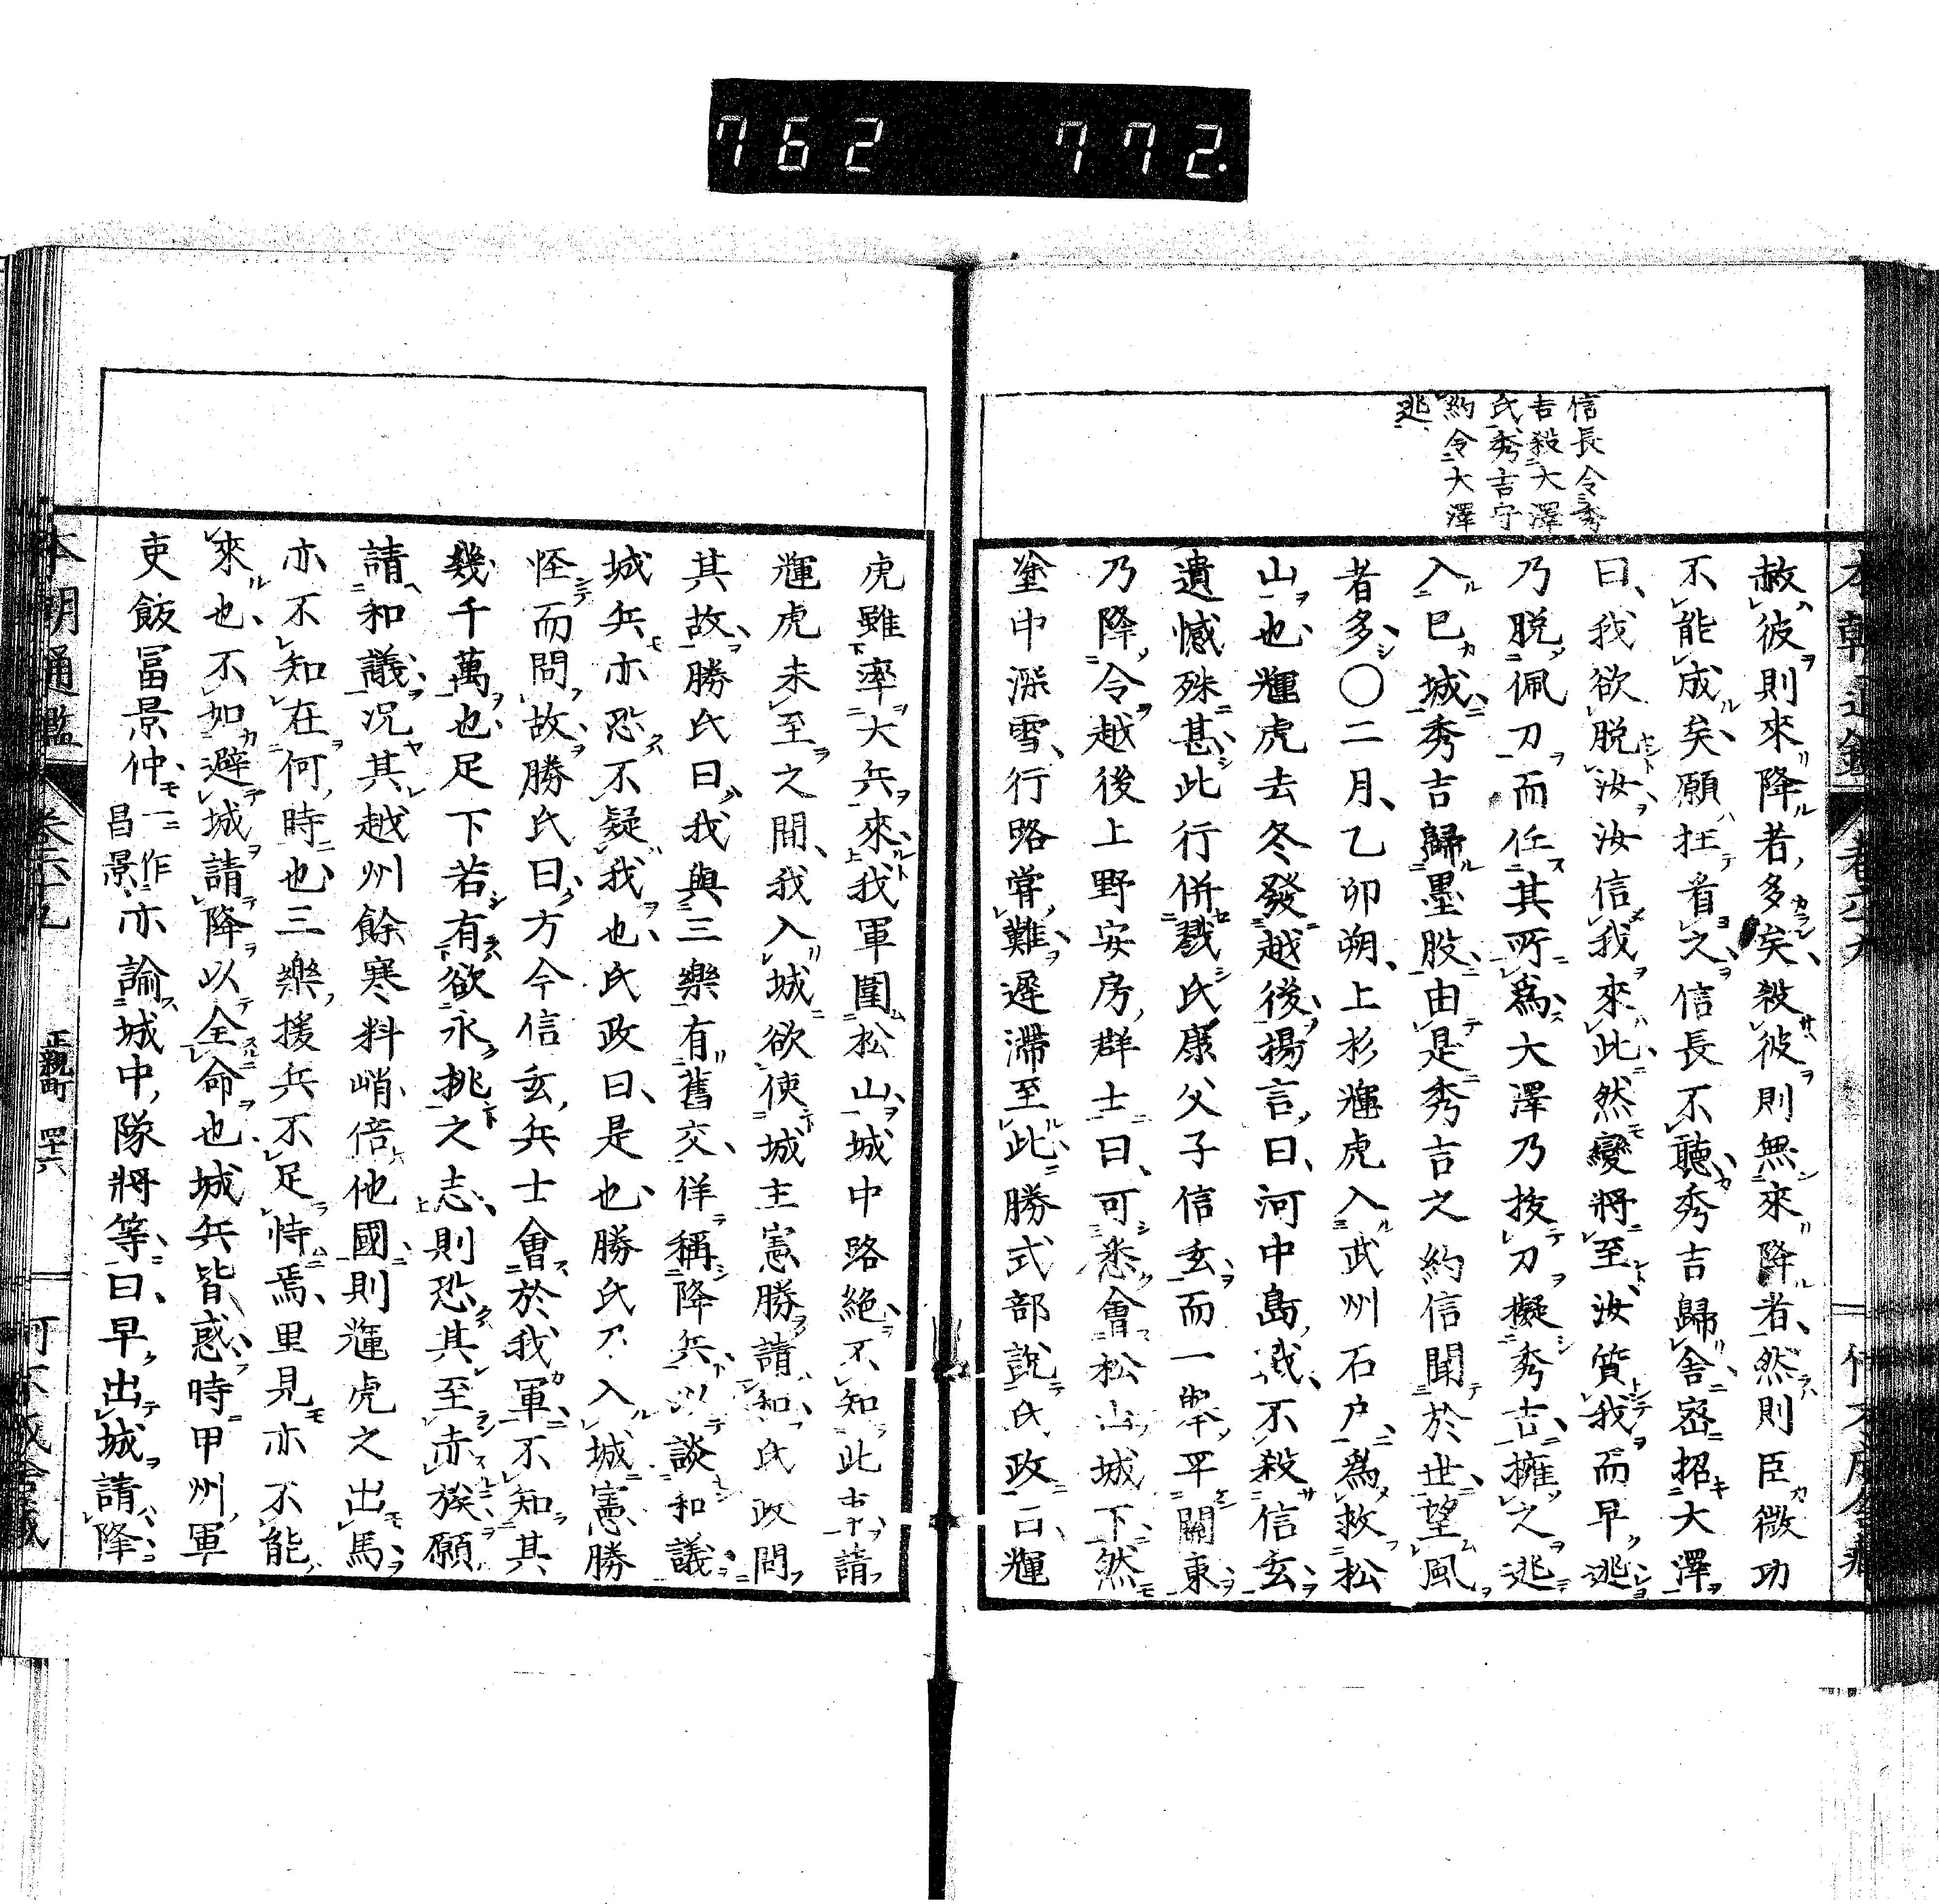 762 772.
信長令秀
吉殺大澤
氏秀吉守
約令大澤
逃
赦彼則來降者多矣殺彼則無來降者然則臣微功
不能成矣願枉看之信長不聽秀吉歸舎密招大澤
曰我欲脱汝汝信我來此然變將至汝質我而早逃
乃脱佩刀而任其所爲大澤乃拔刀擬秀吉擁之逃
入巳城秀吉歸墨股由是秀吉之約信聞於世望風
者多〇二月乙卯朔上杉輝虎入武州石戸爲救松
山也輝虎去冬發越後揚言曰河中島戰不殺信玄
遺憾殊甚此行併戮氏康父子信玄而一擧平關東
乃降令越後上野安房群士曰可悉會松山城下然
塗中深雪行路甞難遲滯至此勝式部説氏政曰輝
虎雖率大兵來我軍圍松山城中路絶不知此事請
輝虎未至之間我入城欲使城主憲勝請和氏政問
其故勝氏曰我與三樂有舊交佯稱降兵以談和議
城兵亦恐不疑我也氏政曰是也勝氏乃入城憲勝
怪而問故勝氏曰方今信玄兵士會於我軍不知其
幾千萬也足下若有欲永挑之志則恐其至赤族願
請和議况其越州餘寒料峭倍他國則輝虎之出馬
亦不知在何時也三樂援兵不足恃焉里見亦不能
來也不如避城請降以全命也城兵皆惑時甲州軍
吏飯冨景仲一作昌景亦諭城中隊將等曰早出城請降
本朝通鑑 卷六十九 正親町 四十六